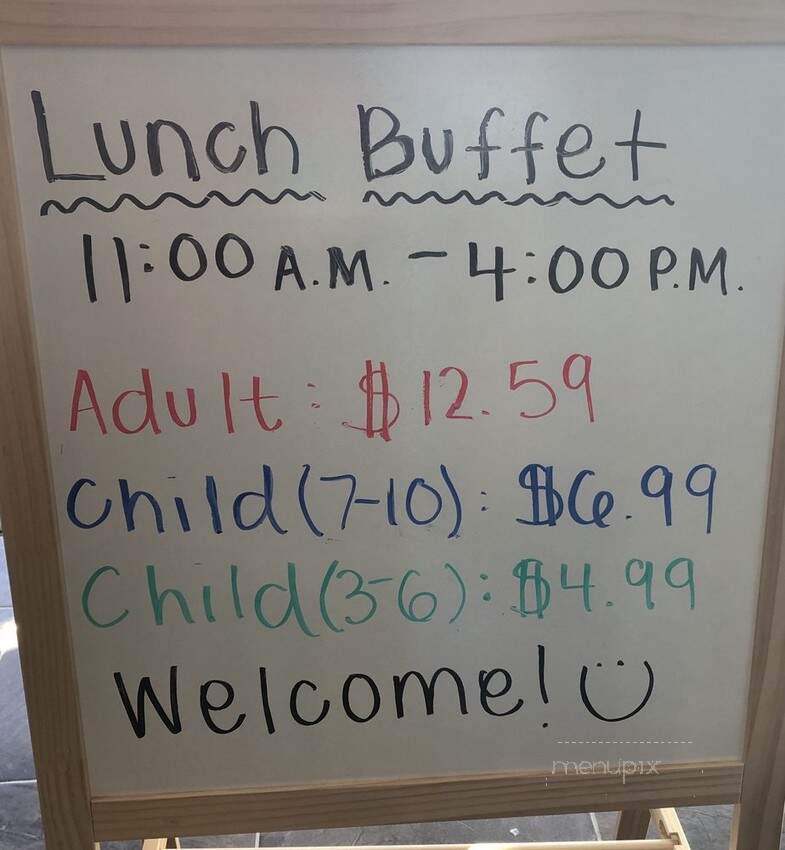 Lunch Buffet
11:00 A.M. - 4:00 P.M.
Adult: $12.59
Child(7-10): $6.99
Child(3-6): $4.99
Welcome!
menupix